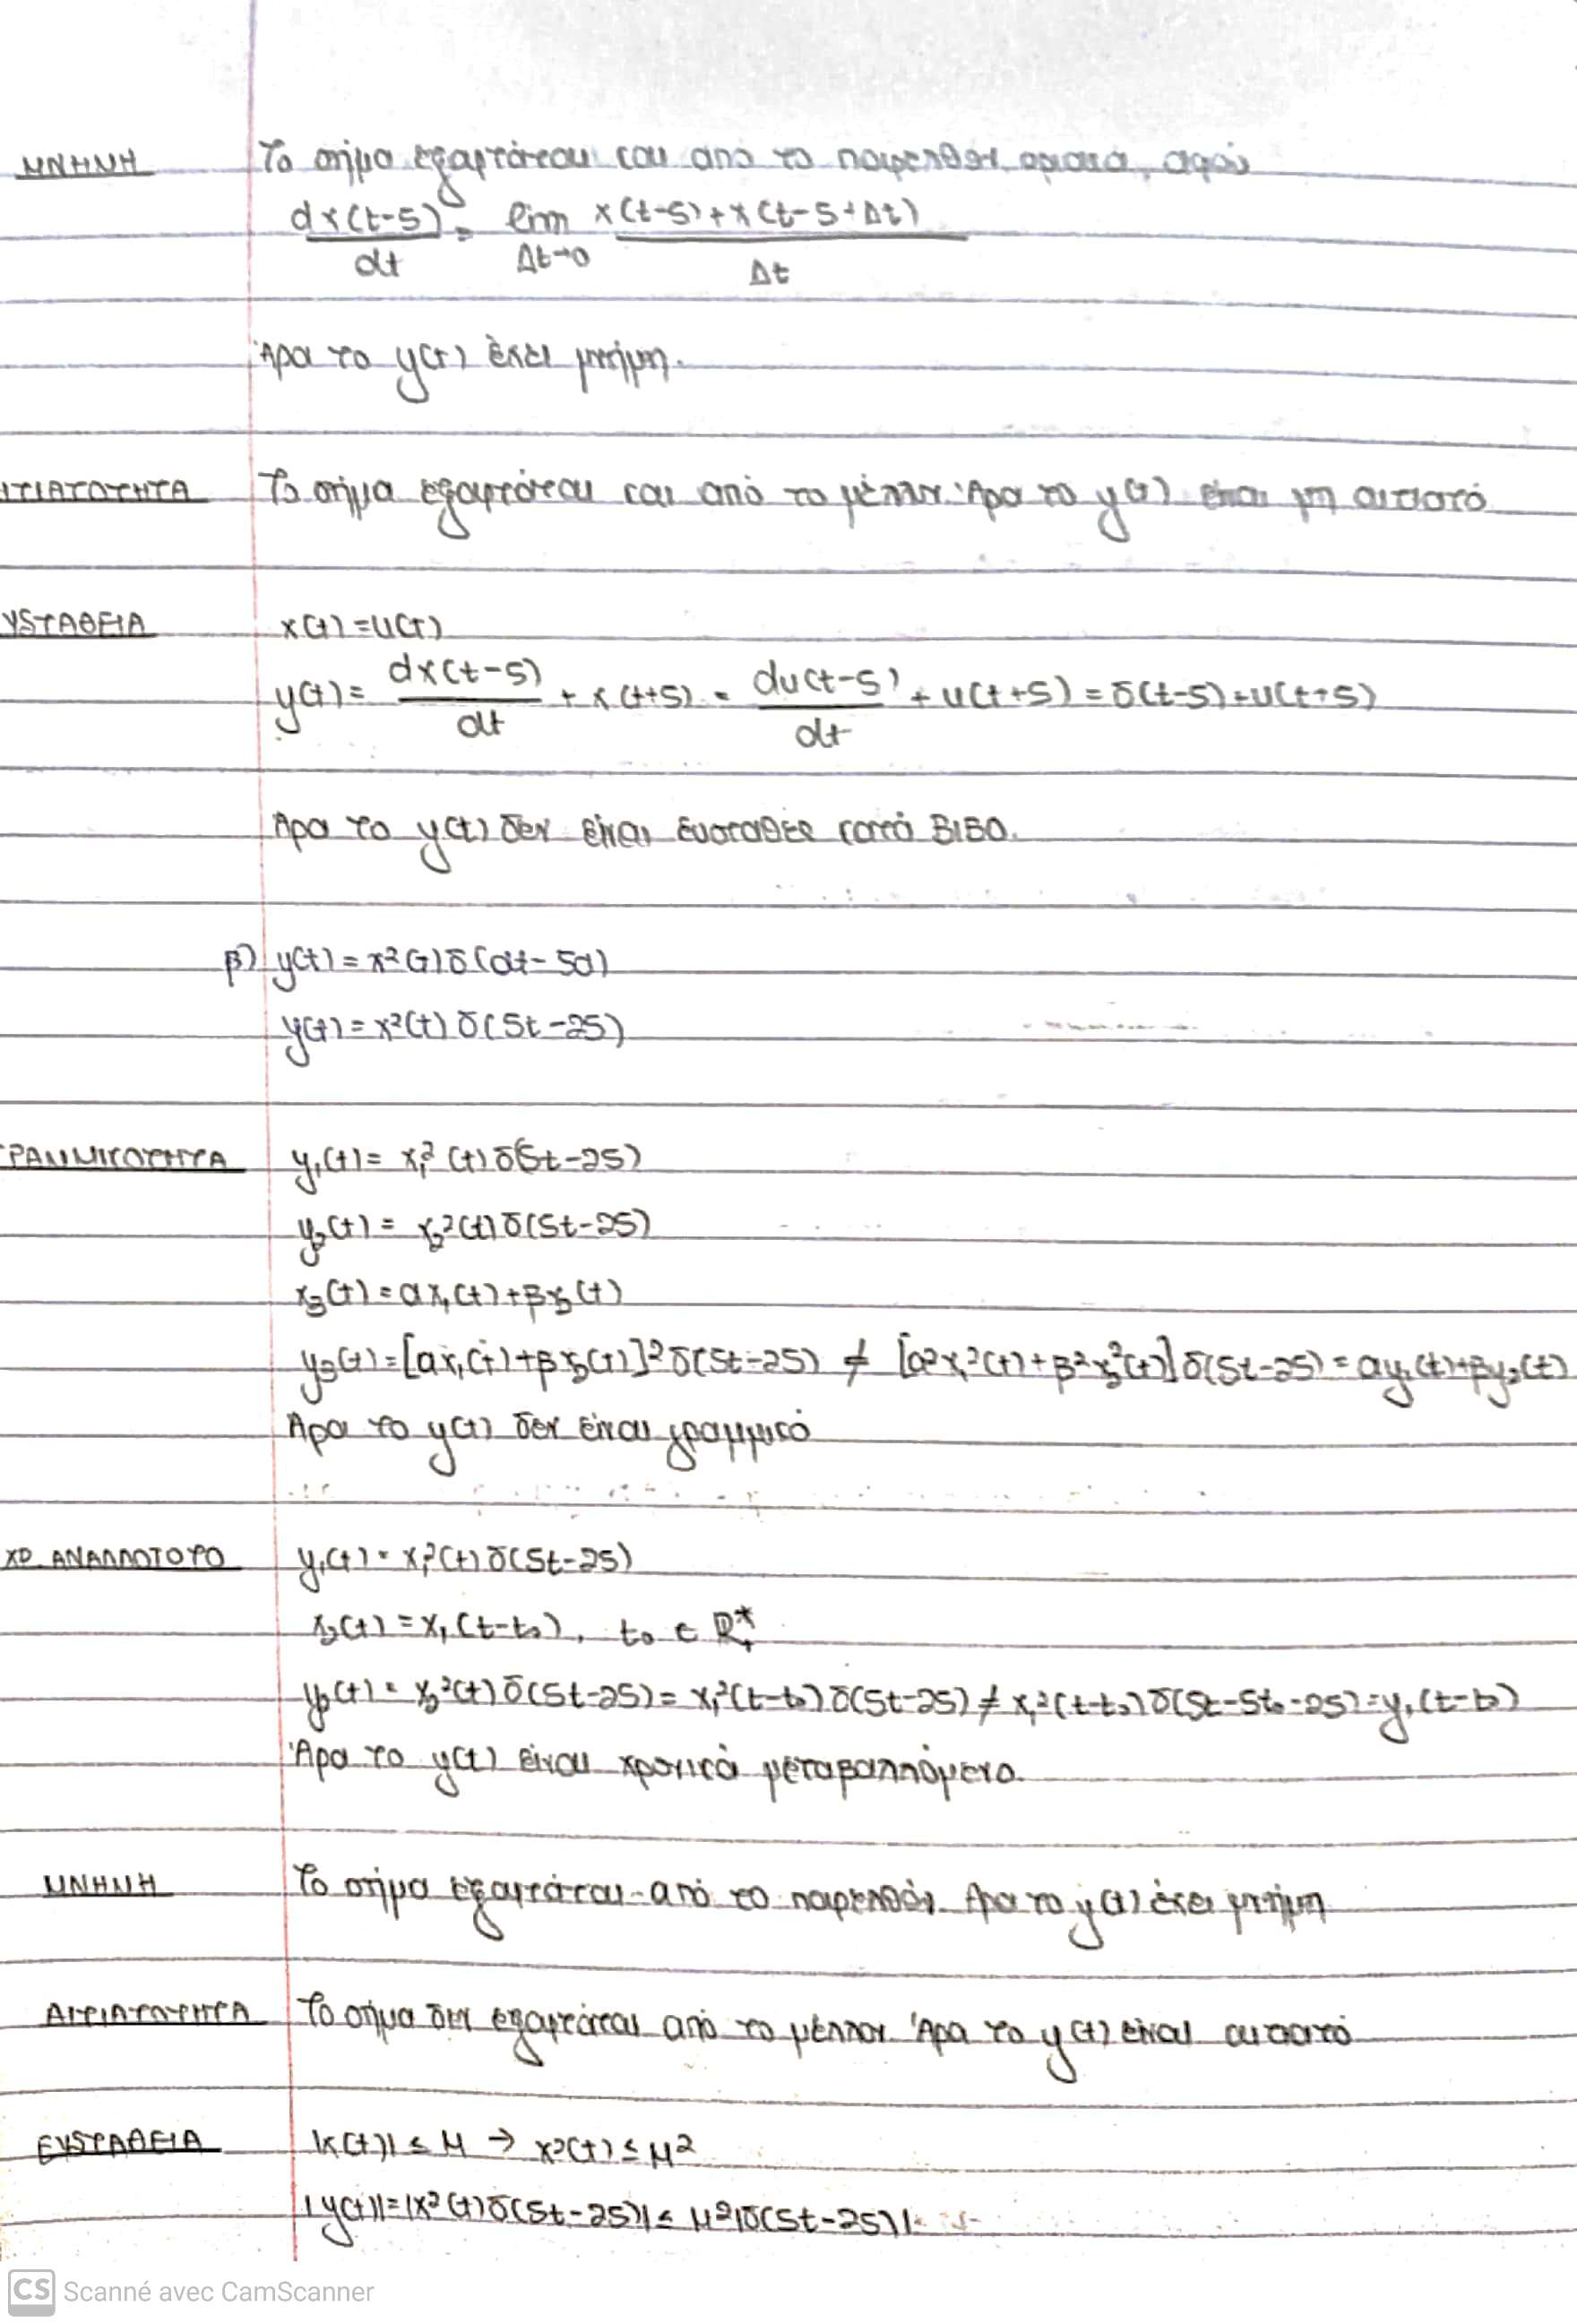 ΜΝΗΜΗ Το σήμα εξαρτάται και από το παρελθόν, αφού
dx(t-5)/dt = lim Δt→0 x(t-5)+x(t-5+Δt)/Δt
Άρα το y(t) έχει μνήμη.
ΙΤΙΑΤΟΤΗΤΑ Το σήμα εξαρτάται και από το μέλλον. Άρα το y(t) είναι μη αιτιατό
ΥΣΤΑΘΕΙΑ x(t)=u(t)
y(t)= dx(t-5)/dt + x(t+5) = du(t-5)/dt + u(t+5) = δ(t-5)+u(t+5)
Άρα το y(t) δεν είναι ευσταθές κατά BIBO.
β) y(t)=x²(t)δ(αt-5α)
y(t)=x²(t)δ(5t-25)
ΓΡΑΜΜΙΚΟΤΗΤΑ y₁(t)= x₁²(t)δ(5t-25)
y₂(t)= x₂²(t)δ(5t-25)
x₃(t)=αx₁(t)+βx₂(t)
y₃(t)=[αx₁(t)+βx₂(t)]²δ(5t-25) ≠ [α²x₁²(t)+β²x₂²(t)]δ(5t-25)=αy₁(t)+βy₂(t)
Άρα το y(t) δεν είναι γραμμικό
ΧΡ. ΑΝΑΛΛΟΙΩΤΟ y₁(t)=x₁²(t)δ(5t-25)
x₂(t)=x₁(t-t₀), t₀ ∈ R₊*
y₂(t)=x₂²(t)δ(5t-25)=x₁²(t-t₀)δ(5t-25)≠x₁²(t-t₀)δ(5t-5t₀-25)=y₁(t-t₀)
Άρα το y(t) είναι χρονικά μεταβαλλόμενο.
ΜΝΗΜΗ Το σήμα εξαρτάται από το παρελθόν. Άρα το y(t) έχει μνήμη
ΑΙΤΙΑΤΟΤΗΤΑ Το σήμα δεν εξαρτάται από το μέλλον. Άρα το y(t) είναι αιτιατό
ΕΥΣΤΑΘΕΙΑ |x(t)| ≤ M → x²(t) ≤ M²
|y(t)|=|x²(t)δ(5t-25)| ≤ M²|δ(5t-25)|
CS Scanné avec CamScanner